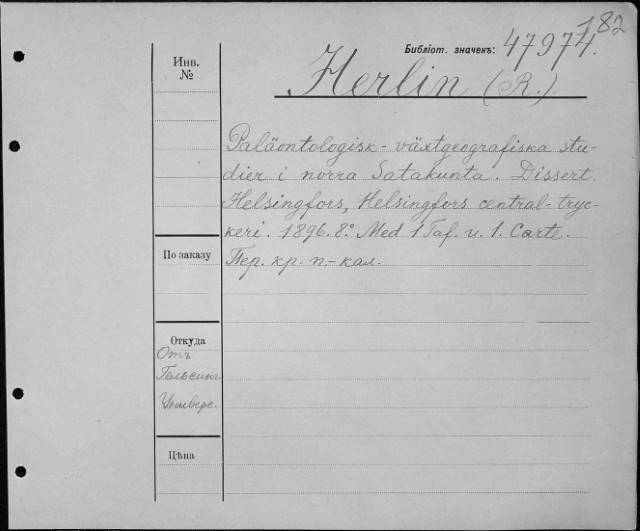 182
Библіот. значекъ: 47974.
Инв.
№
Herlin (R.)
Paläontologisk-växtgeografiska stu-
dier i norra Satakunta. Dissert.
Helsingfors, Helsingfors central-tryc-
keri. 1896. 8º. Med 1 Taf. u. 1. Carte.
По заказу
Пер. кр. п.-кал.
Откуда
Отъ
Гельсинг.
Универс.
Цѣна